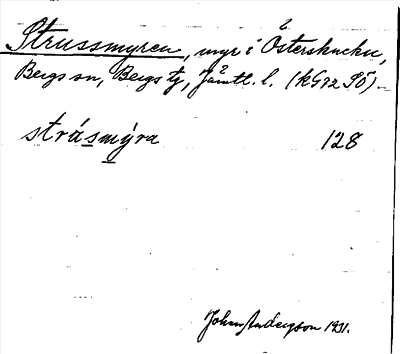 Strussmyren, myr i Österskucku,
Bergs sn, Bergs tg, Jämtl. l. (kG72 SÖ).
strásmýra 128
Johan Anderzson 1931.